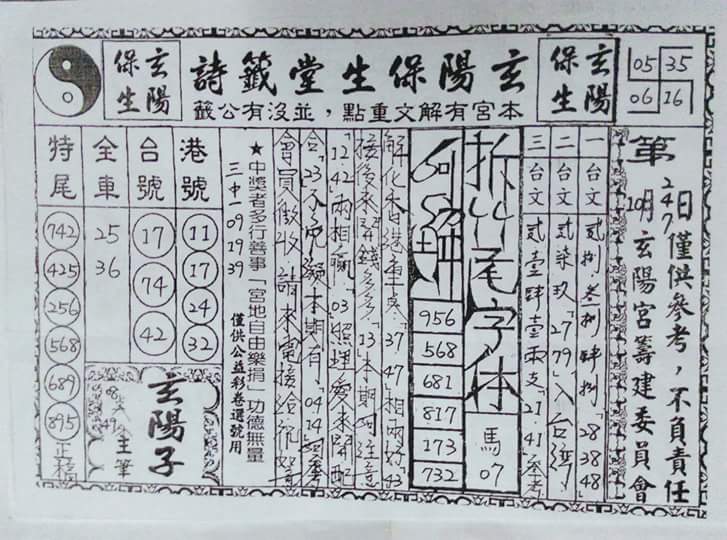 玄陽保生堂籤詩
本宮有解文重點，並沒有公籤
玄陽保生
玄陽保生
05 35
06 16
日僅供參考，不負責任
第 10月 24 玄陽宮籌建委員會
一 台文 貳捌叁捌肆捌「28 38 48
二 台文 貳柒玖「27 79」入台灣
三 台文 貳壹肆壹兩支「21.41參考
拆竹尾字体
馬
07
956
568
681
817
173
732
37 47相兩好 43
接後來 錢多多「13本期可注意
「12 42」兩相贏 03照理愛來開配
合「23 本期有「04 14
會員徵收 請來電接洽
★中獎者多行善事「宮地自由樂捐」功德無量
三中一 09 19 39 僅供公益彩卷選號用
港號
11
17
24
32
台號
17
74
42
全車
25
36
特尾
742
425
256
568
689
895
正稿
玄陽子
主筆